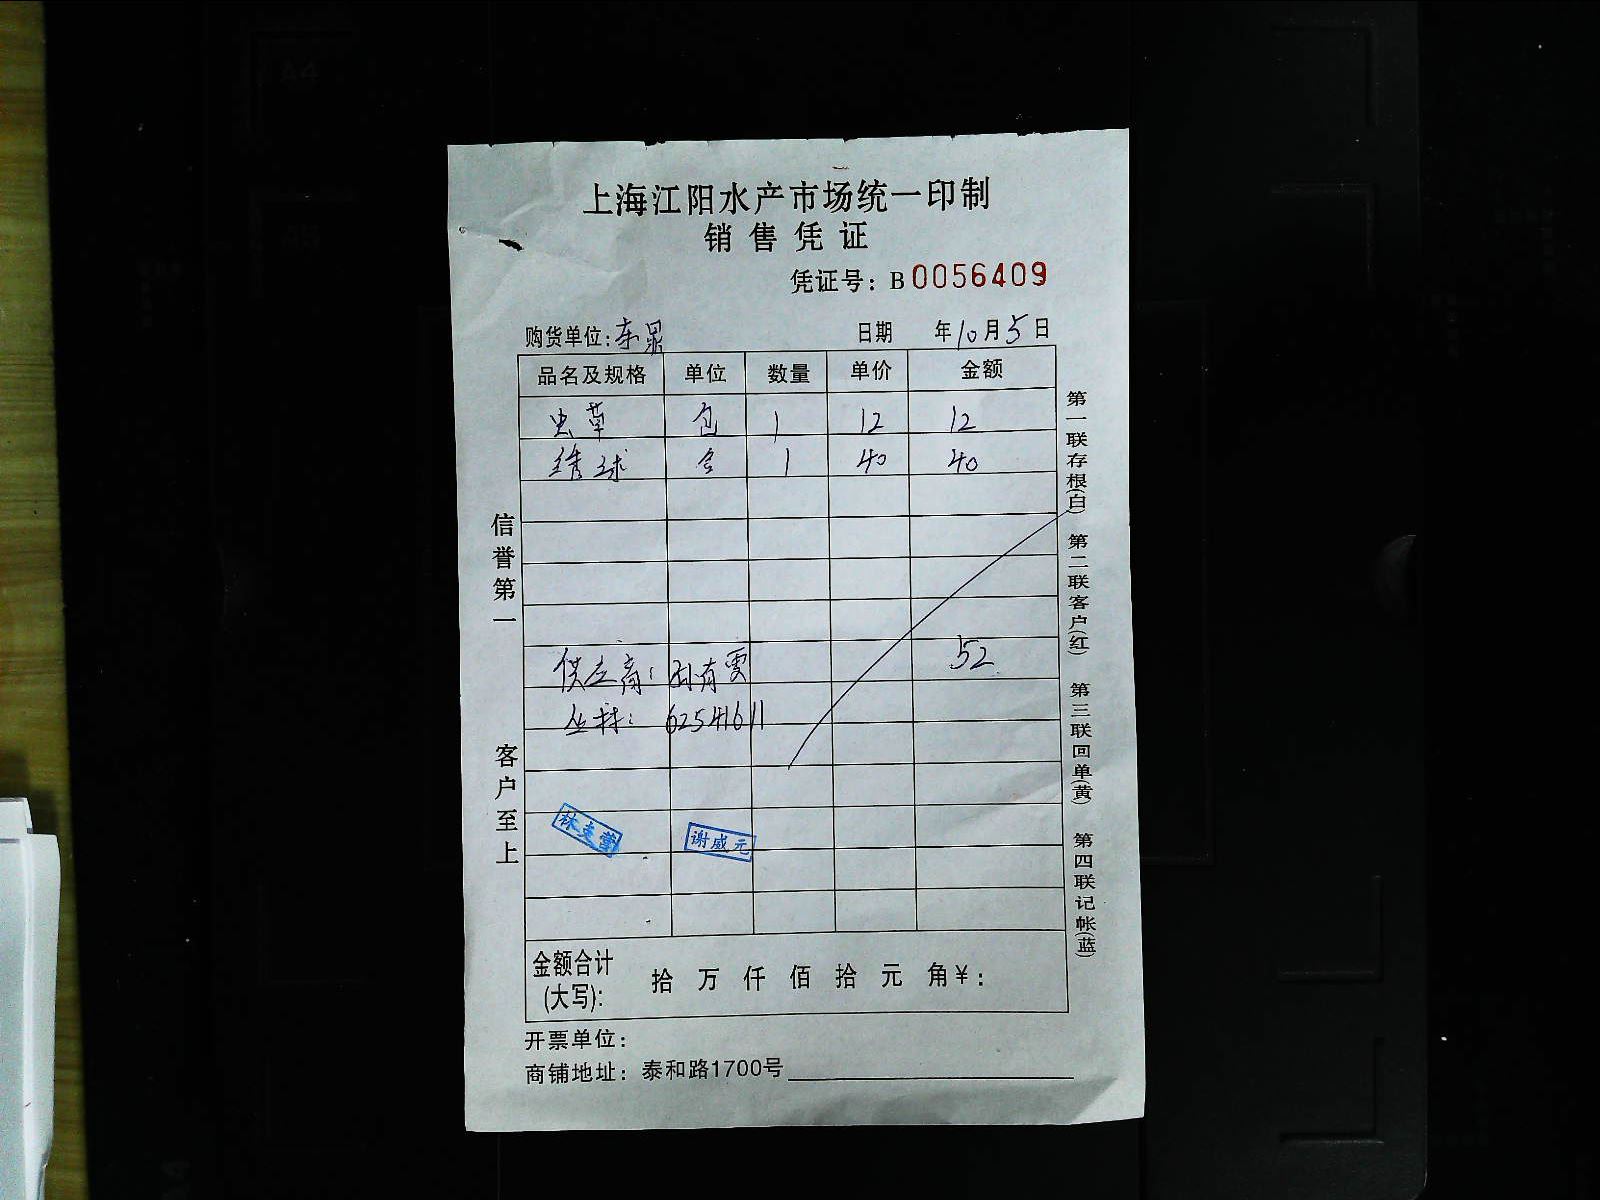 上海江阳水产市场统一印制
销售凭证
凭证号：B0056409
购货单位：东晁 日期 年10月5日
品名及规格 单位 数量 单价 金额
虫草 包 1 12 12
绣球 合 1 40 40
52
供应商：孙有雯
丛林：62541611
谢咸元
金额合计(大写)： 拾 万 仟 佰 拾 元 角￥：
开票单位：
商铺地址：泰和路1700号
信誉第一
客户至上
第一联存根(白) 第二联客户(红) 第三联回单(黄) 第四联记帐(蓝)